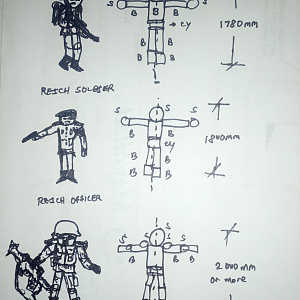 S S
B B B
→ cy
B B
B B
1780mm
REICH SOLDIER
S S
B B
cy
B B
B B
1800mm
REICH OFFICER
S S S S
B B
B B
2000mm
or more